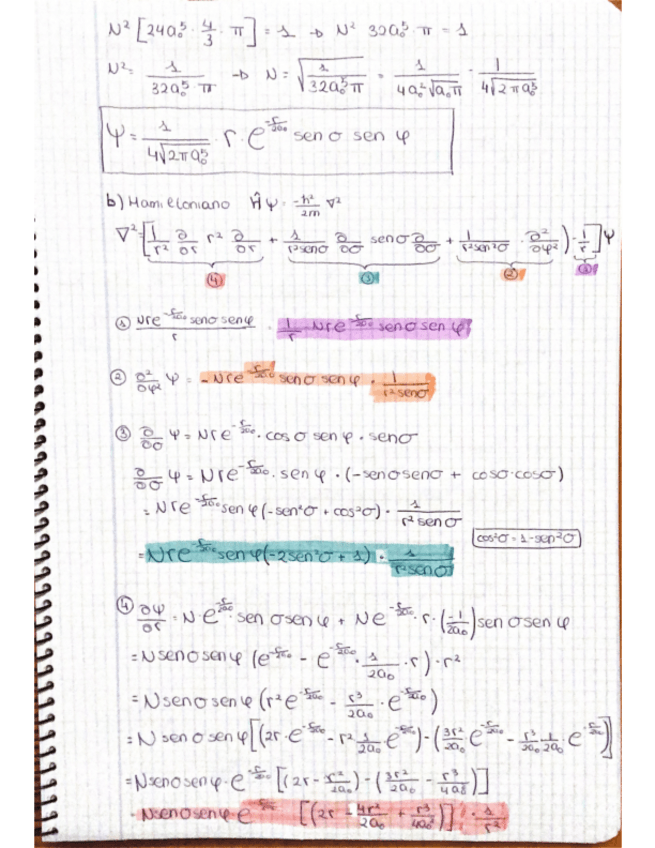 N² [24a₀⁵ · 4/3 · π] = 1 → N² 32a₀⁵ · π = 1
N² = 1/(32a₀⁵ · π) → N = √(1/(32a₀⁵π)) = 1/(4a₀²√(a₀π)) · 1/(4√(2πa₀⁵))
Ψ = 1/(4√(2πa₀⁵)) · r · e^(-r/2a₀) sen σ sen φ
b) Hamiltoniano Ĥψ = -ħ²/2m ∇²
∇² = [1/r² ∂/∂r r² ∂/∂r + 1/(r² senσ) ∂/∂σ senσ ∂/∂σ + 1/(r² sen²σ) · ∂²/∂φ²) · 1/r]ψ
④ ③ ② ①
① Nre^(-r/2a₀) senσ senφ / r = 1/r · Nre^(-r/2a₀) senσ sen φ
② ∂²/∂φ² ψ = -Nre^(-r/2a₀) senσ senφ · 1/(r² senσ)
③ ∂/∂σ ψ = Nre^(-r/2a₀) · cos σ sen φ · senσ
∂/∂σ ψ = Nre^(-r/2a₀) · sen φ · (-senσ senσ + cosσ · cosσ)
= Nre^(-r/2a₀) sen φ (-sen²σ + cos²σ) · 1/(r² senσ)
cos²σ = 1 - sen²σ
= Nre^(-r/2a₀) sen φ (-2sen²σ + 1) · 1/(r² senσ)
④ ∂ψ/∂r = N · e^(-r/2a₀) · sen σ sen φ + Ne^(-r/2a₀) · r · (-1/2a₀) sen σ sen φ
= N senσ sen φ (e^(-r/2a₀) - e^(-r/2a₀) · 1/2a₀ · r) · r²
= N senσ sen φ (r² e^(-r/2a₀) - r³/2a₀ · e^(-r/2a₀))
= N sen σ sen φ [(2r · e^(-r/2a₀) - r² 1/2a₀ e^(-r/2a₀)) - (3r²/2a₀ e^(-r/2a₀) - r³/2a₀ 1/2a₀ e^(-r/2a₀))]
= N senσ sen φ · e^(-r/2a₀) [(2r - r²/2a₀) - (3r²/2a₀ - r³/4a₀²)]
N senσ sen φ · e^(-r/2a₀) [(2r - 4r²/2a₀ + r³/4a₀²)] · 1/r²